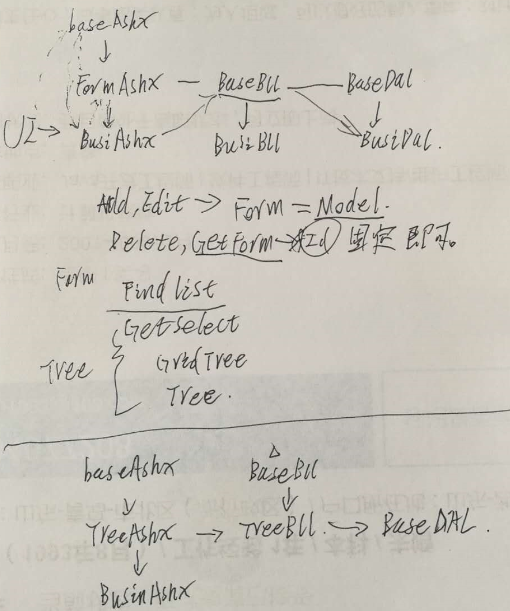 baseAshx
FormAshx — BaseBll — BaseDal
UI → BusiAshx BusiBll BusiDal.
Add, Edit → Form = Model.
Delete, GetForm → Id 固定 即可。
Form Findlist
GetSelect
Tree { GridTree
Tree.
baseAshx BaseBll
TreeAshx → TreeBll → BaseDAL.
BusinAshx